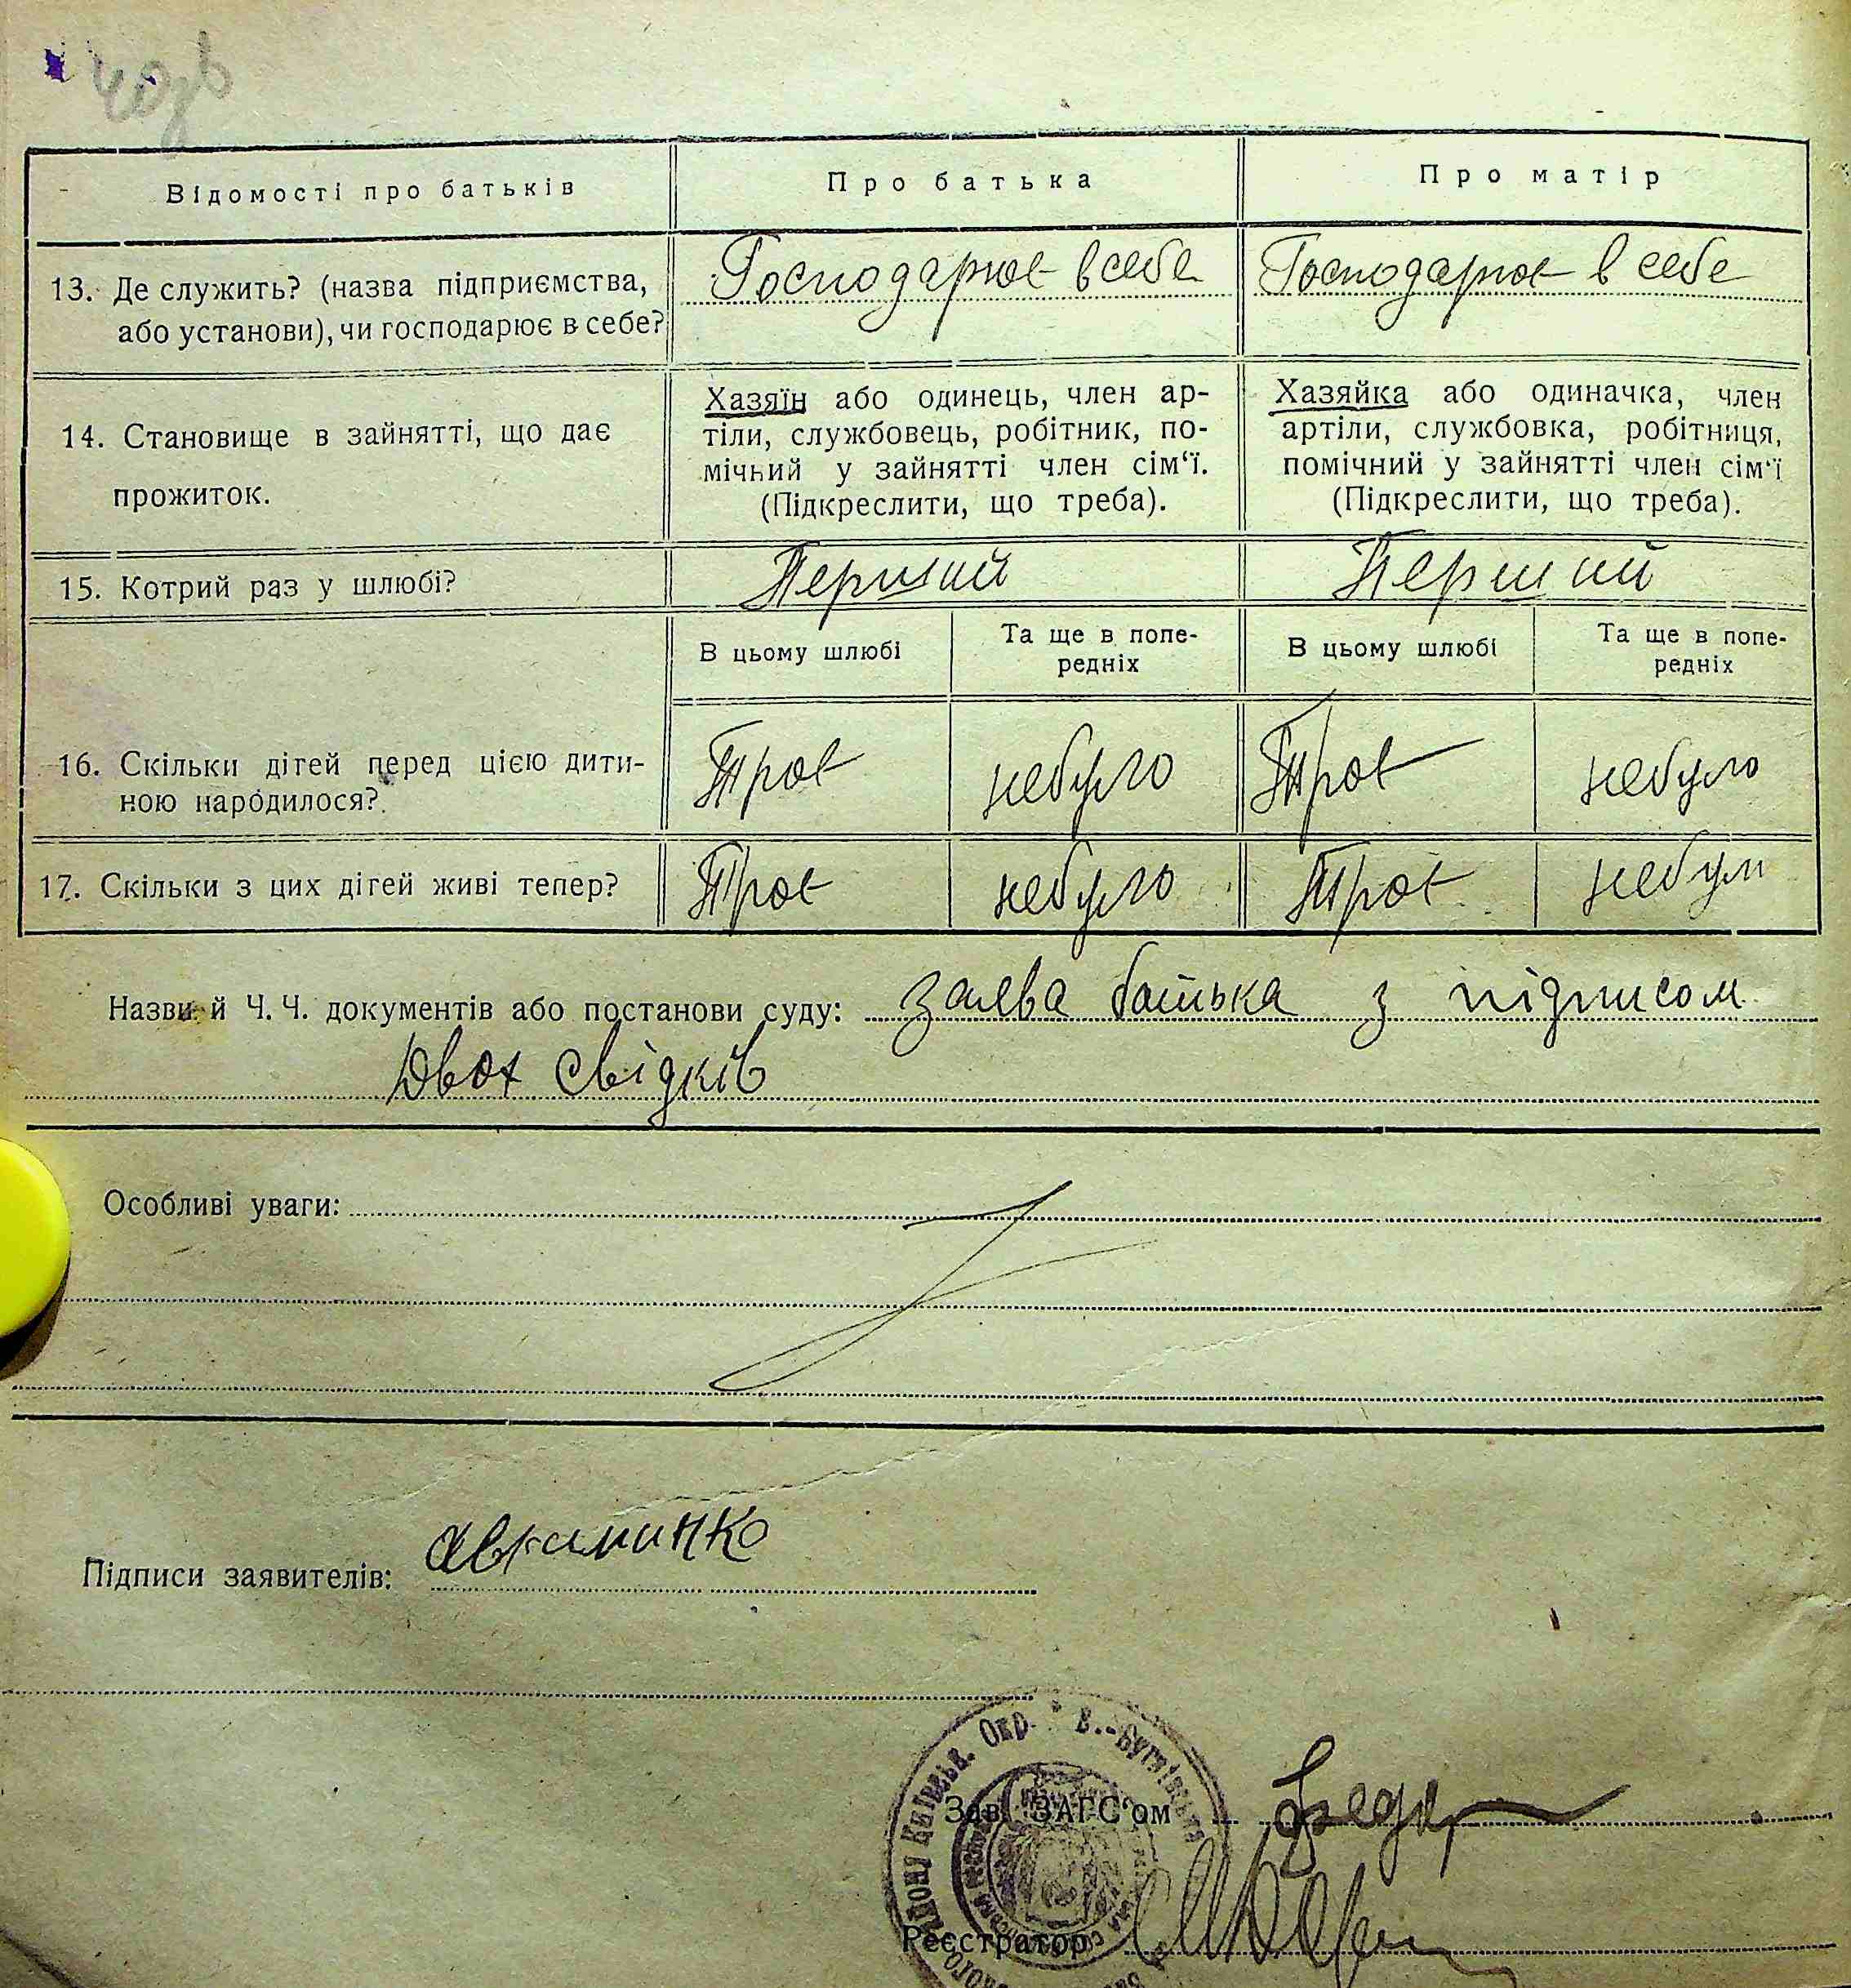 Відомості про батьків
Про батька
Про матір
13. Де служить? (назва підприємства,
або установи), чи господарює в себе?
Господарює в себе
Господарює в себе
14. Становище в зайнятті, що дає
прожиток.
Хазяїн або одинець, член ар-
тіли, службовець, робітник, по-
мічний у зайнятті член сім‘ї.
(Підкреслити, що треба).
Хазяйка або одиначка, член
артіли, службовка, робітниця,
помічний у зайнятті член сім‘ї
(Підкреслити, що треба).
15. Котрий раз у шлюбі?
Перший
Перший
В цьому шлюбі
Та ще в попе-
редніх
В цьому шлюбі
Та ще в попе-
редніх
16. Скільки дітей перед цією дити-
ною народилося?
Троє
небуло
Троє
небуло
17. Скільки з цих дітей живі тепер?
Троє
небуло
Троє
небуло
Назви й Ч. Ч. документів або постанови суду: заява батька з підписом
двох свідків
Особливі уваги:
Підписи заявителів:
Зав. ЗАГС‘ом
Реєстратор
Київськ. Окр. * В.-Бугаївська